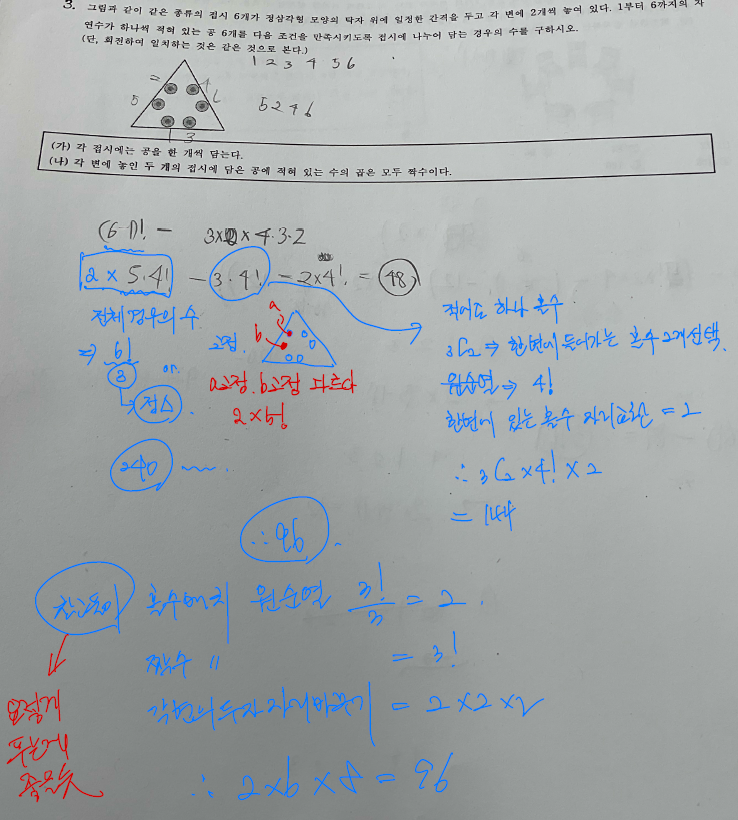 3. 그림과 같이 같은 종류의 접시 6개가 정삼각형 모양의 탁자 위에 일정한 간격을 두고 각 변에 2개씩 놓여 있다. 1부터 6까지의 자
연수가 하나씩 적혀 있는 공 6개를 다음 조건을 만족시키도록 접시에 나누어 담는 경우의 수를 구하시오.
(단, 회전하여 일치하는 것은 같은 것으로 본다.)
1 2 3 4 5 6
5 2 4 6
5
1 3
(가) 각 접시에는 공을 한 개씩 담는다.
(나) 각 변에 놓인 두 개의 접시에 담은 공에 적혀 있는 수의 곱은 모두 짝수이다.
(6-1)! - 3×2×4·3·2
2 × 5·4! - 3·4! - 2×4! = 48
전체 경우의 수
⇒ 6!/3 or
→ 점△
고정
a
b
a고정, b고정 다르다
2×5!
240
적어도 하나 홀수
3C2 ⇒ 한변에 들어가는 홀수 2개 선택.
원순열 ⇒ 4!
한변에 있는 홀수 자리교환 = 2
∴ 3C2 × 4! × 2
= 144
∴ 96
홀수배치 원순열 3!/3 = 2.
짝수 〃 = 3!
각변의 두자리 바꾸기 = 2×2×2
∴ 2×6×8 = 96
요렇게
푸는게
좋을듯